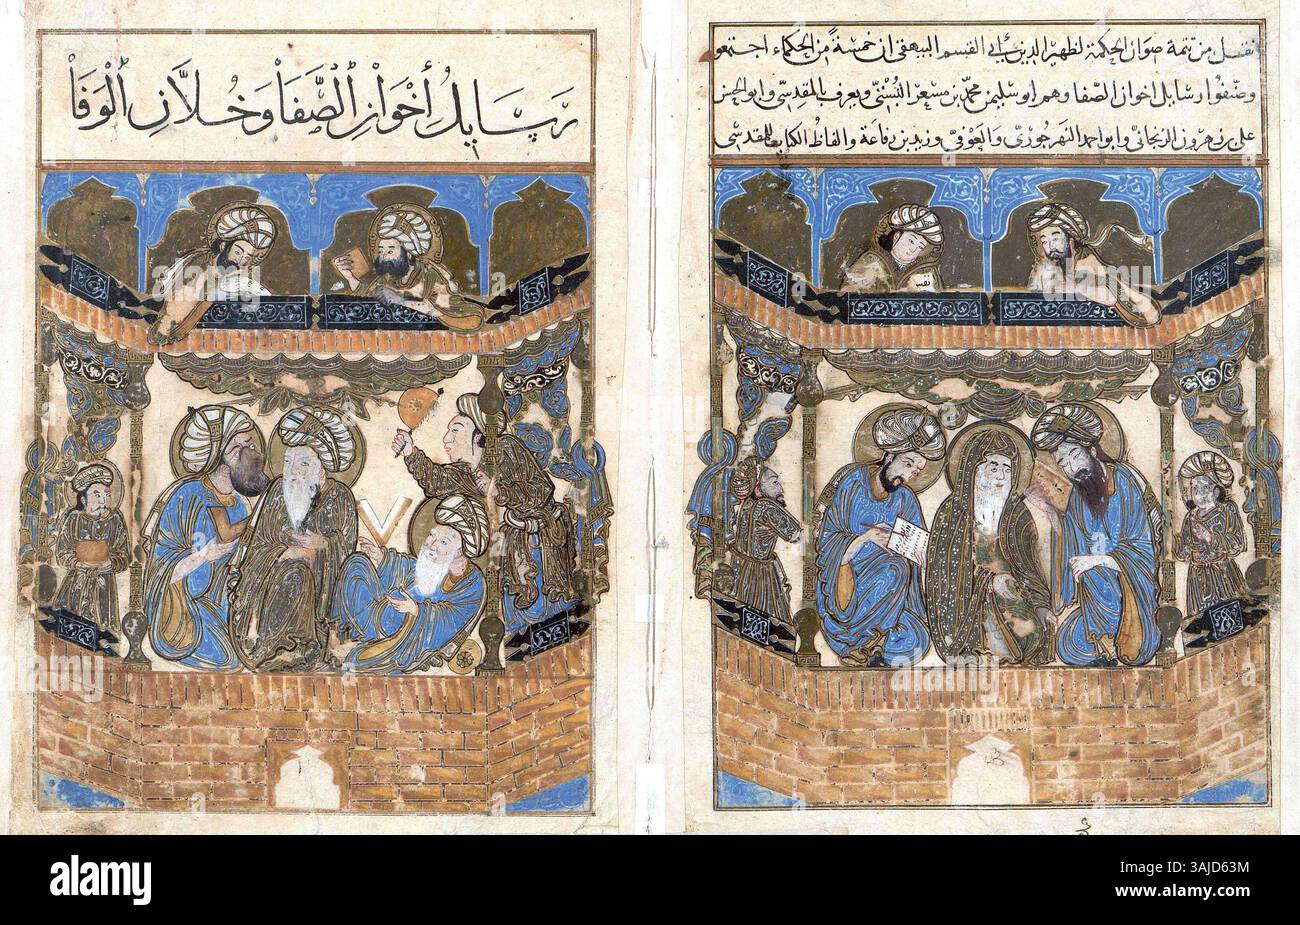 نقل من تتمة صوان الحكمة لظهير الدين أبي القسم البيهقي ان خمسةً من الحكماء اجتمعوا
وصنّفوا رسايل اخوان الصفا وهم ابو سليمن محمد بن مسعر البُسْتي ويعرف بالمقدسي وابو الحسن
علي بن زهرون الزنجاني وابو احمد النهرجوري والعوفي وزيد بن رفاعة والفاظ الكتاب للمقدسي
رَسَايِلُ أَخْوَانِ الصَّفَا وَخُلَّانِ الْوَفَا
alamy
Image ID: 3AJD63M
www.alamy.com